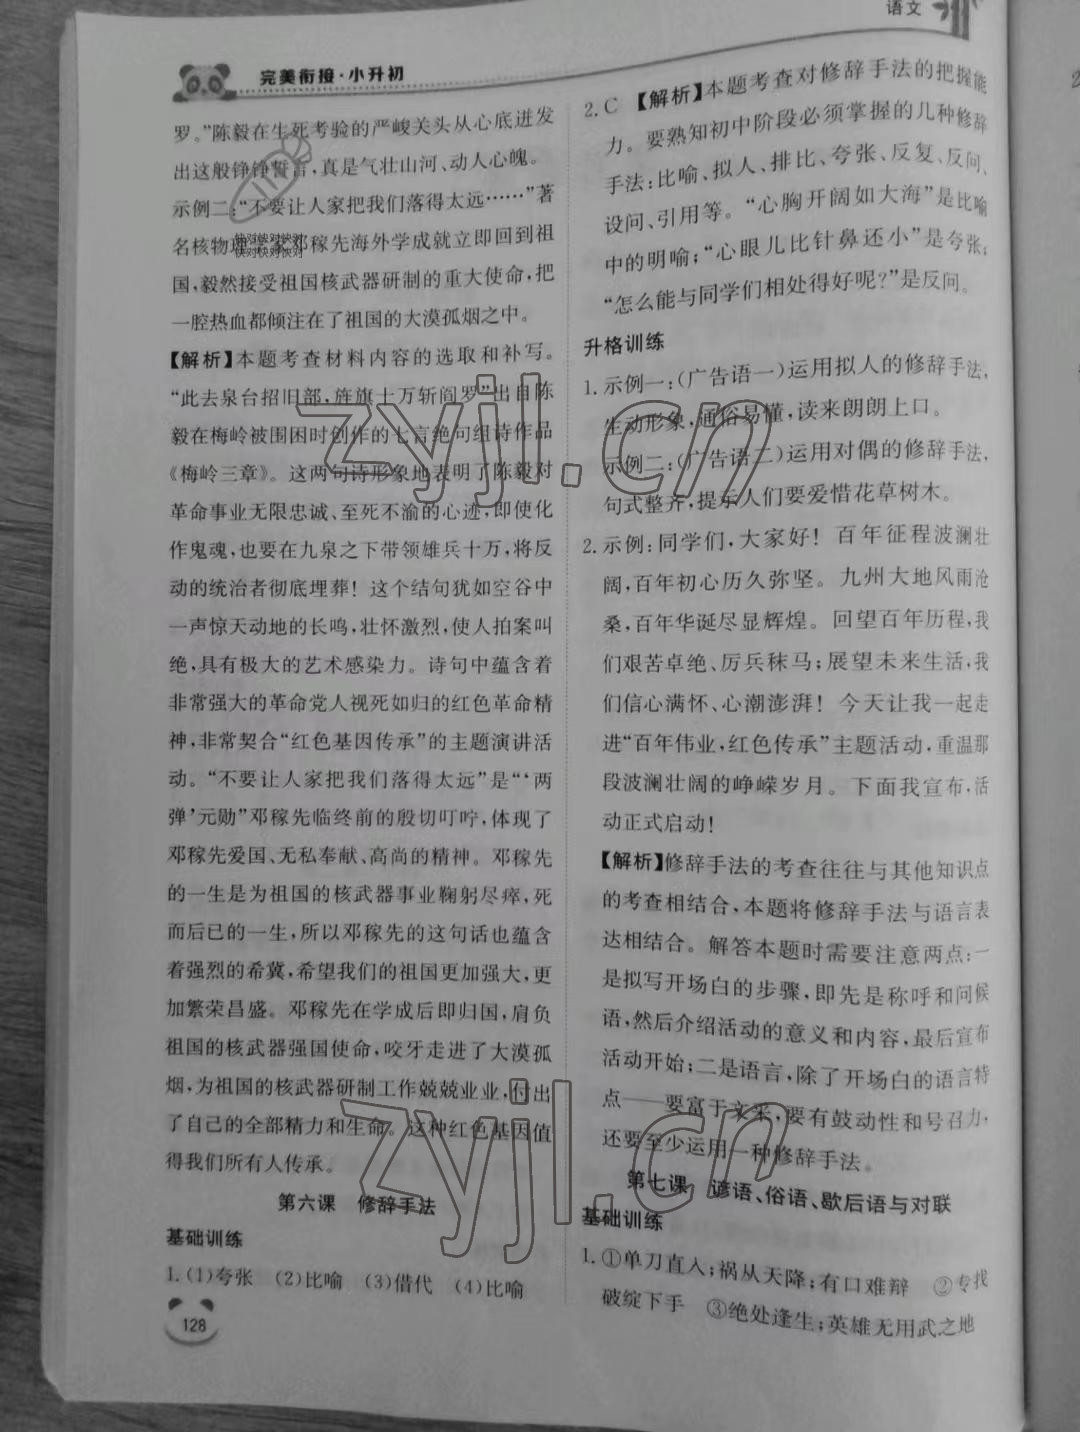 语文
完美衔接·小升初
罗。”陈毅在生死考验的严峻关头从心底迸发
出这般铮铮誓言,真是气壮山河、动人心魄。
示例二:“不要让人家把我们落得太远……”著
名核物理学家邓稼先海外学成就立即回到祖
国,毅然接受祖国核武器研制的重大使命,把
一腔热血都倾注在了祖国的大漠孤烟之中。
【解析】本题考查材料内容的选取和补写。
“此去泉台招旧部,旌旗十万斩阎罗”出自陈
毅在梅岭被围困时创作的七言绝句组诗作品
《梅岭三章》。这两句诗形象地表明了陈毅对
革命事业无限忠诚、至死不渝的心迹,即使化
作鬼魂,也要在九泉之下带领雄兵十万,将反
动的统治者彻底埋葬!这个结句犹如空谷中
一声惊天动地的长鸣,壮怀激烈,使人拍案叫
绝,具有极大的艺术感染力。诗句中蕴含着
非常强大的革命党人视死如归的红色革命精
神,非常契合“红色基因传承”的主题演讲活
动。“不要让人家把我们落得太远”是“‘两
弹’元勋”邓稼先临终前的殷切叮咛,体现了
邓稼先爱国、无私奉献、高尚的精神。邓稼先
的一生是为祖国的核武器事业鞠躬尽瘁,死
而后已的一生,所以邓稼先的这句话也蕴含
着强烈的希冀,希望我们的祖国更加强大,更
加繁荣昌盛。邓稼先在学成后即归国,肩负
祖国的核武器强国使命,咬牙走进了大漠孤
烟,为祖国的核武器研制工作兢兢业业,付出
了自己的全部精力和生命。这种红色基因值
得我们所有人传承。
第六课 修辞手法
基础训练
1.(1)夸张 (2)比喻 (3)借代 (4)比喻
128
2.C 【解析】本题考查对修辞手法的把握能
力。要熟知初中阶段必须掌握的几种修辞
手法:比喻、拟人、排比、夸张、反复、反问、
设问、引用等。“心胸开阔如大海”是比喻
中的明喻;“心眼儿比针鼻还小”是夸张;
“怎么能与同学们相处得好呢?”是反问。
升格训练
1.示例一:(广告语一)运用拟人的修辞手法,
生动形象,通俗易懂,读来朗朗上口。
示例二:(广告语二)运用对偶的修辞手法,
句式整齐,提示人们要爱惜花草树木。
2.示例:同学们,大家好!百年征程波澜壮
阔,百年初心历久弥坚。九州大地风雨沧
桑,百年华诞尽显辉煌。回望百年历程,我
们艰苦卓绝、厉兵秣马;展望未来生活,我
们信心满怀、心潮澎湃!今天让我一起走
进“百年伟业,红色传承”主题活动,重温那
段波澜壮阔的峥嵘岁月。下面我宣布,活
动正式启动!
【解析】修辞手法的考查往往与其他知识点
的考查相结合,本题将修辞手法与语言表
达相结合。解答本题时需要注意两点:一
是拟写开场白的步骤,即先是称呼和问候
语,然后介绍活动的意义和内容,最后宣布
活动开始;二是语言,除了开场白的语言特
点——要富于文采,要有鼓动性和号召力,
还要至少运用一种修辞手法。
第七课 谚语、俗语、歇后语与对联
基础训练
1.①单刀直入;祸从天降;有口难辩 ②专找
破绽下手 ③绝处逢生;英雄无用武之地
快对快对快对
快对快对快对
zyjl.cn
zyjl.cn